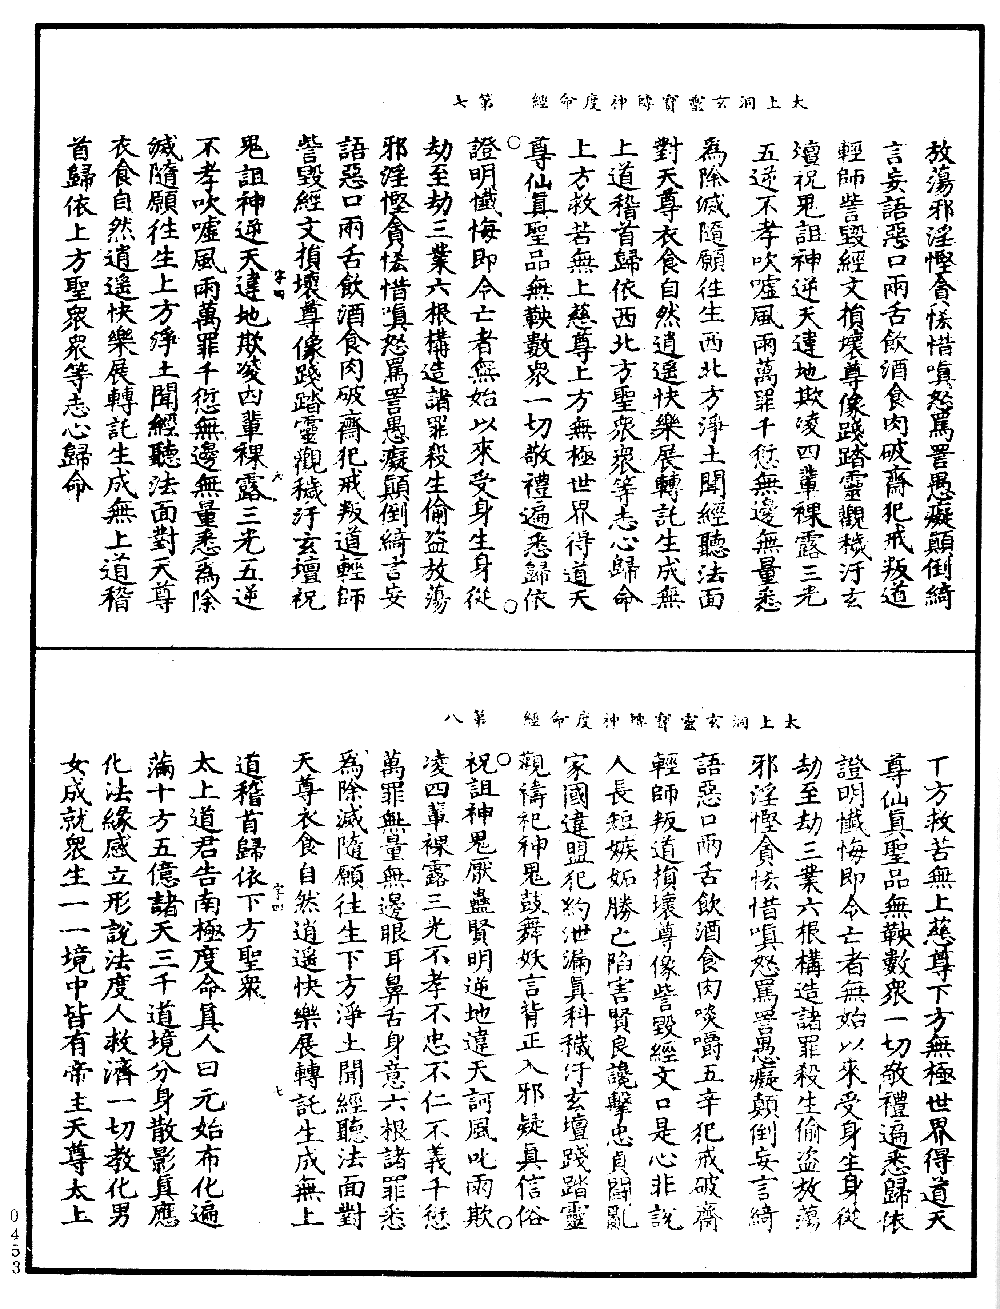 太上洞玄靈寶轉神度命經　第七
放蕩邪淫慳貪恡惜嗔怒罵詈愚癡顛倒綺
言妄語惡口兩舌飲酒食肉破齋犯戒叛道
輕師訾毀經文損壞尊像踐踏靈觀穢汙玄
壇祝鬼詛神逆天違地欺凌四輩裸露三光
五逆不孝吹噓風雨萬罪千愆無邊無量悉
為除滅隨願往生西北方淨土聞經聽法面
對天尊衣食自然逍遙快樂展轉託生成無
上道稽首歸依西北方聖衆衆等志心歸命
上方救苦無上慈尊上方無極世界得道天
尊仙真聖品無鞅數衆一切敬禮遍悉歸依
證明懺悔即今亡者無始以來受身生身從
劫至劫三業六根構造諸罪殺生偷盜放蕩
邪淫慳貪恡惜嗔怒罵詈愚癡顛倒綺言妄
語惡口兩舌飲酒食肉破齋犯戒叛道輕師
訾毀經文損壞尊像踐踏靈觀穢汙玄壇祝
字四
六
鬼詛神逆天違地欺凌四輩裸露三光五逆
不孝吹噓風雨萬罪千愆無邊無量悉為除
滅隨願往生上方淨土聞經聽法面對天尊
衣食自然逍遙快樂展轉託生成無上道稽
首歸依上方聖衆衆等志心歸命
太上洞玄靈寶轉神度命經　第八
下方救苦無上慈尊下方無極世界得道天
尊仙真聖品無鞅數衆一切敬禮遍悉歸依
證明懺悔即今亡者無始以來受身生身從
劫至劫三業六根構造諸罪殺生偷盜放蕩
邪淫慳貪恡惜嗔怒罵詈愚癡顛倒妄言綺
語惡口兩舌飲酒食肉啖嚼五辛犯戒破齋
輕師叛道損壞尊像訾毀經文口是心非說
人長短嫉妬勝己陷害賢良讒擊忠貞鬭亂
家國違盟犯約泄漏真科穢汙玄壇踐踏靈
觀禱祀神鬼鼓舞妖言背正入邪疑真信俗
祝詛神鬼厭蠱賢明逆地違天訶風叱雨欺
凌四輩裸露三光不孝不忠不仁不義千愆
萬罪無量無邊眼耳鼻舌身意六根諸罪悉
為除滅隨願往生下方淨土聞經聽法面對
天尊衣食自然逍遙快樂展轉託生成無上
字四
七
道稽首歸依下方聖衆
太上道君告南極度命真人曰元始布化遍
滿十方五億諸天三千道境分身散影真應
化法緣感立形說法度人救濟一切教化男
女成就衆生一一境中皆有帝主天尊太上
0453